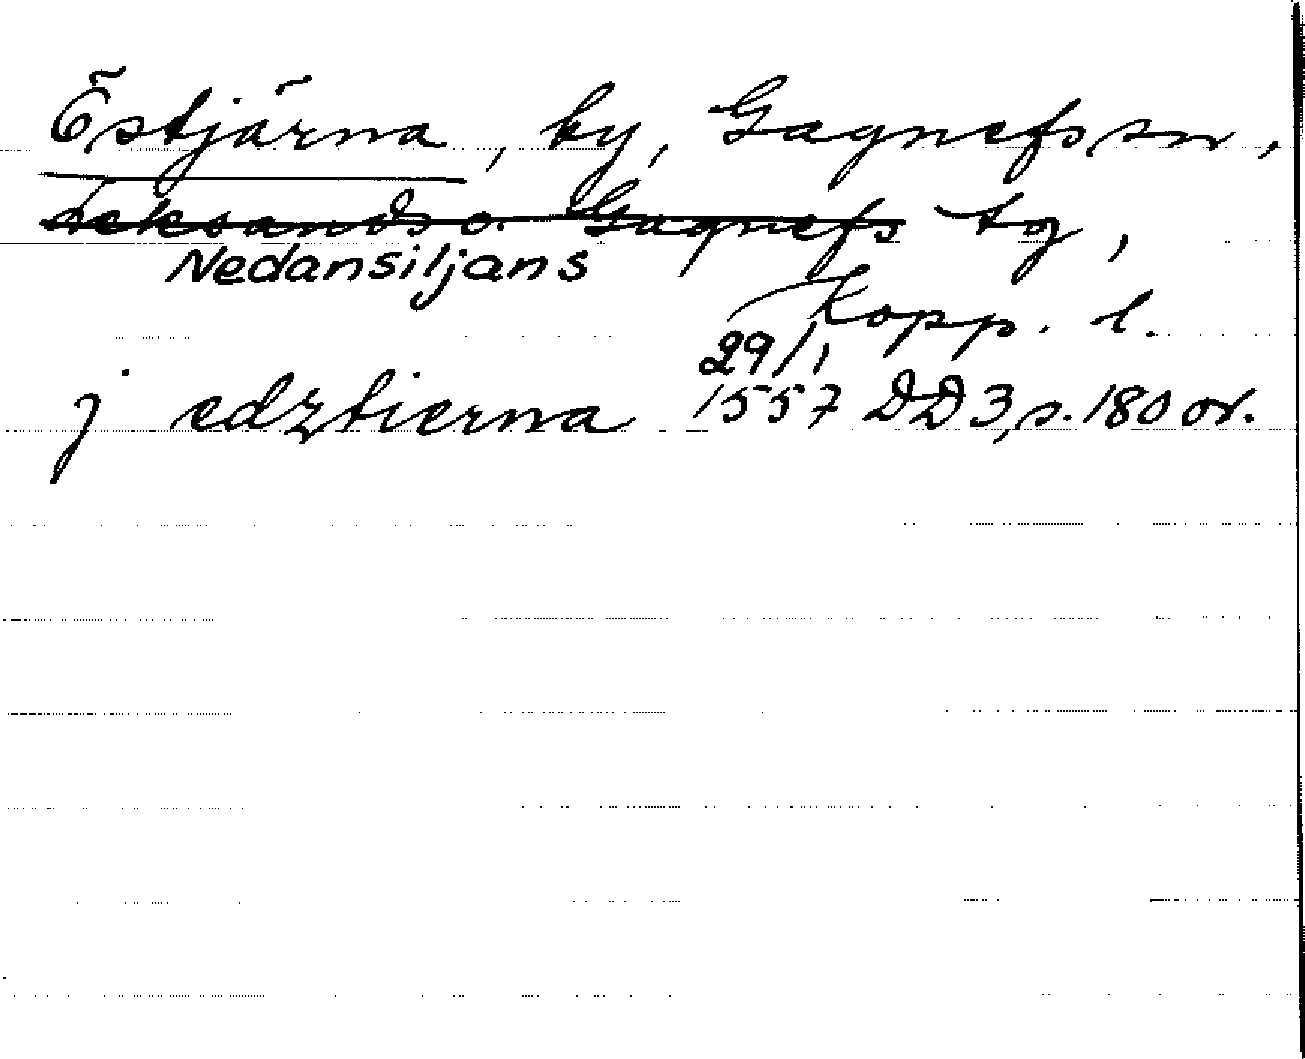 Östjärna, by, Gagnefs sn,
Leksands o. Gagnefs tg,
Nedansiljans
Kopp. l.
29/1
j edztierna 1557 DD 3, s. 180 or.